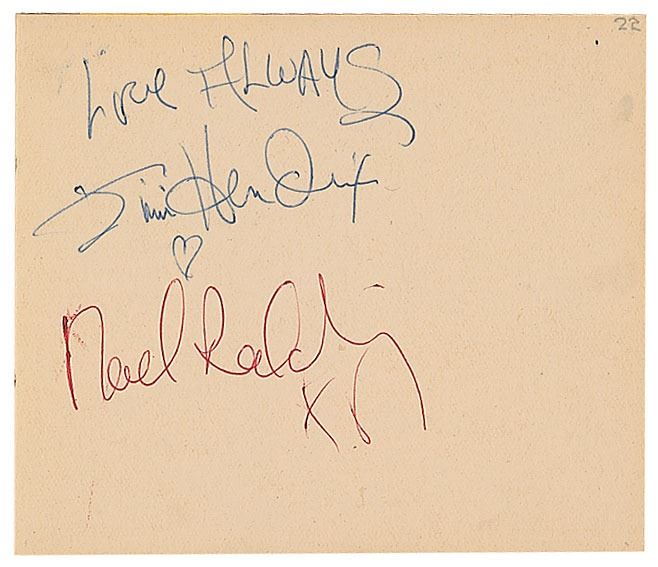 22
Love ALWAYS
Jimi HenDrix
Noel Redding
X